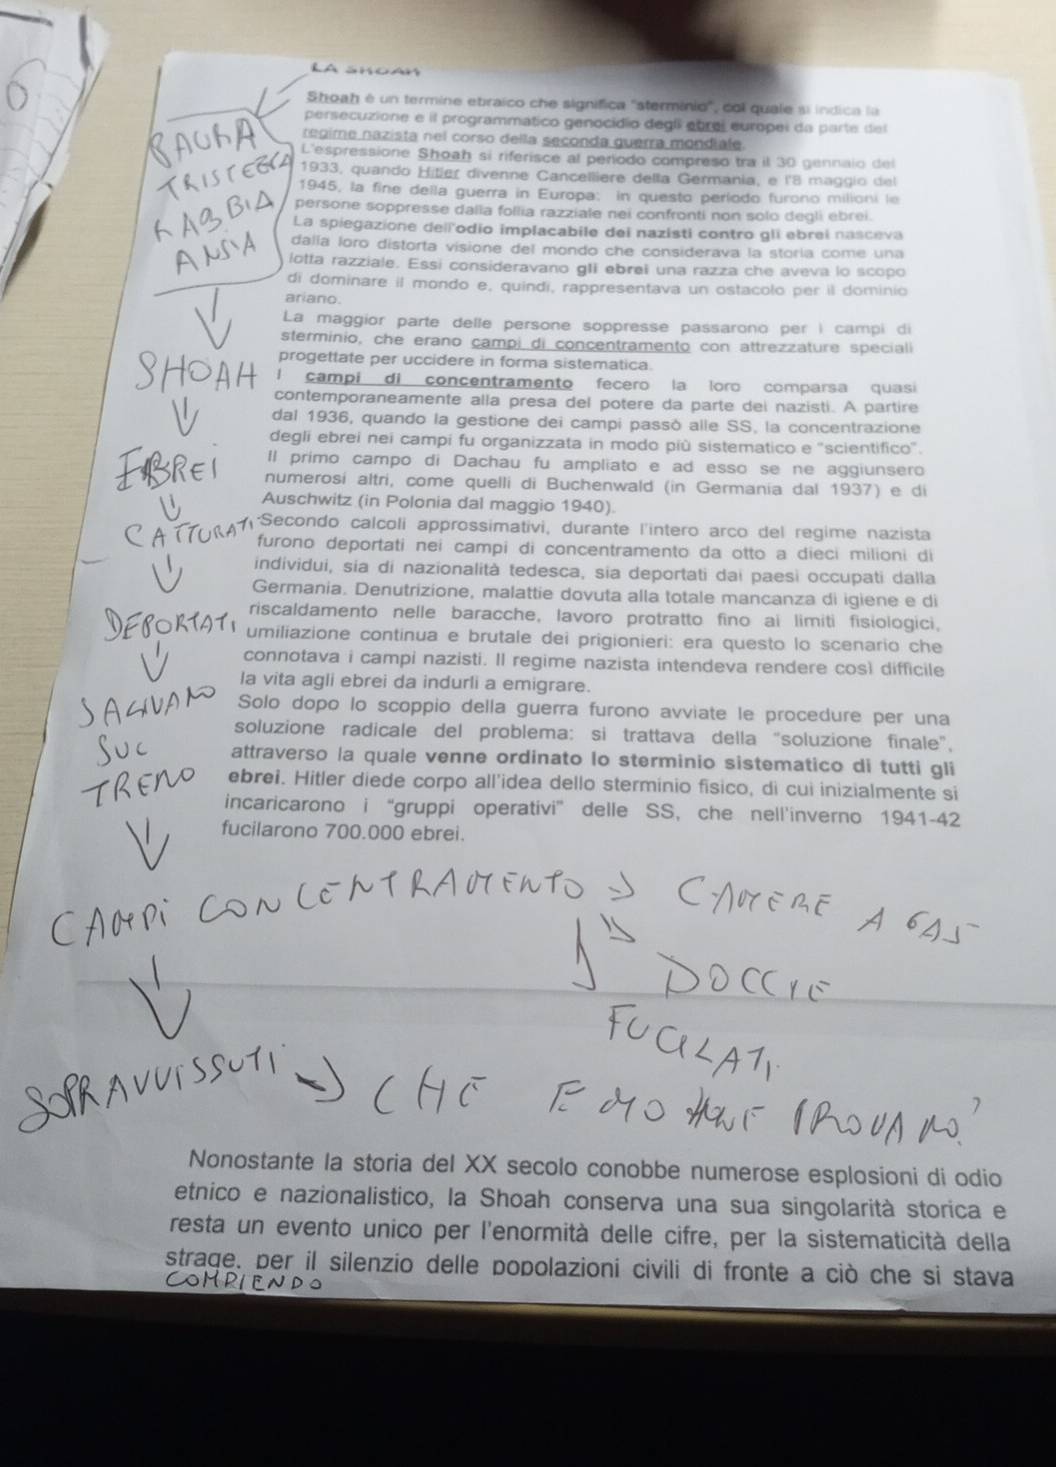 LA SHOAH
Shoah è un termine ebraico che significa "sterminio", col quale si indica la
persecuzione e il programmatico genocidio degli ebrei europei da parte del
regime nazista nel corso della seconda guerra mondiale.
L'espressione Shoah si riferisce al periodo compreso tra il 30 gennaio del
1933, quando Hitler divenne Cancelliere della Germania, e l'8 maggio del
1945, la fine della guerra in Europa: in questo periodo furono milioni le
persone soppresse dalla follia razziale nei confronti non solo degli ebrei.
La spiegazione dell'odio implacabile dei nazisti contro gli ebrei nasceva
dalla loro distorta visione del mondo che considerava la storia come una
lotta razziale. Essi consideravano gli ebrei una razza che aveva lo scopo
di dominare il mondo e, quindi, rappresentava un ostacolo per il dominio
ariano.
La maggior parte delle persone soppresse passarono per i campi di
sterminio, che erano campi di concentramento con attrezzature speciali
progettate per uccidere in forma sistematica.
I campi di concentramento fecero la loro comparsa quasi
contemporaneamente alla presa del potere da parte dei nazisti. A partire
dal 1936, quando la gestione dei campi passò alle SS, la concentrazione
degli ebrei nei campi fu organizzata in modo più sistematico e "scientifico".
Il primo campo di Dachau fu ampliato e ad esso se ne aggiunsero
numerosi altri, come quelli di Buchenwald (in Germania dal 1937) e di
Auschwitz (in Polonia dal maggio 1940).
Secondo calcoli approssimativi, durante l'intero arco del regime nazista
furono deportati nei campi di concentramento da otto a dieci milioni di
individui, sia di nazionalità tedesca, sia deportati dai paesi occupati dalla
Germania. Denutrizione, malattie dovuta alla totale mancanza di igiene e di
riscaldamento nelle baracche, lavoro protratto fino ai limiti fisiologici,
umiliazione continua e brutale dei prigionieri: era questo lo scenario che
connotava i campi nazisti. Il regime nazista intendeva rendere così difficile
la vita agli ebrei da indurli a emigrare.
Solo dopo lo scoppio della guerra furono avviate le procedure per una
soluzione radicale del problema: si trattava della "soluzione finale",
attraverso la quale venne ordinato lo sterminio sistematico di tutti gli
ebrei. Hitler diede corpo all'idea dello sterminio fisico, di cui inizialmente si
incaricarono i "gruppi operativi" delle SS, che nell'inverno 1941-42
fucilarono 700.000 ebrei.
PAURA
TRISTEZZA
RABBIA
ANSIA
SHOAH
EBREI
CATTURATI
DEPORTATI
SALIVANO
SUL
TRENO
CAMPI CONCENTRAMENTO => CAMERE A GAS
DOCCIE
FUCILATI
SOPRAVVISSUTI => CHE EMOZIONE PROVANO?
Nonostante la storia del XX secolo conobbe numerose esplosioni di odio
etnico e nazionalistico, la Shoah conserva una sua singolarità storica e
resta un evento unico per l'enormità delle cifre, per la sistematicità della
strage, per il silenzio delle popolazioni civili di fronte a ciò che si stava
COMPIENDO